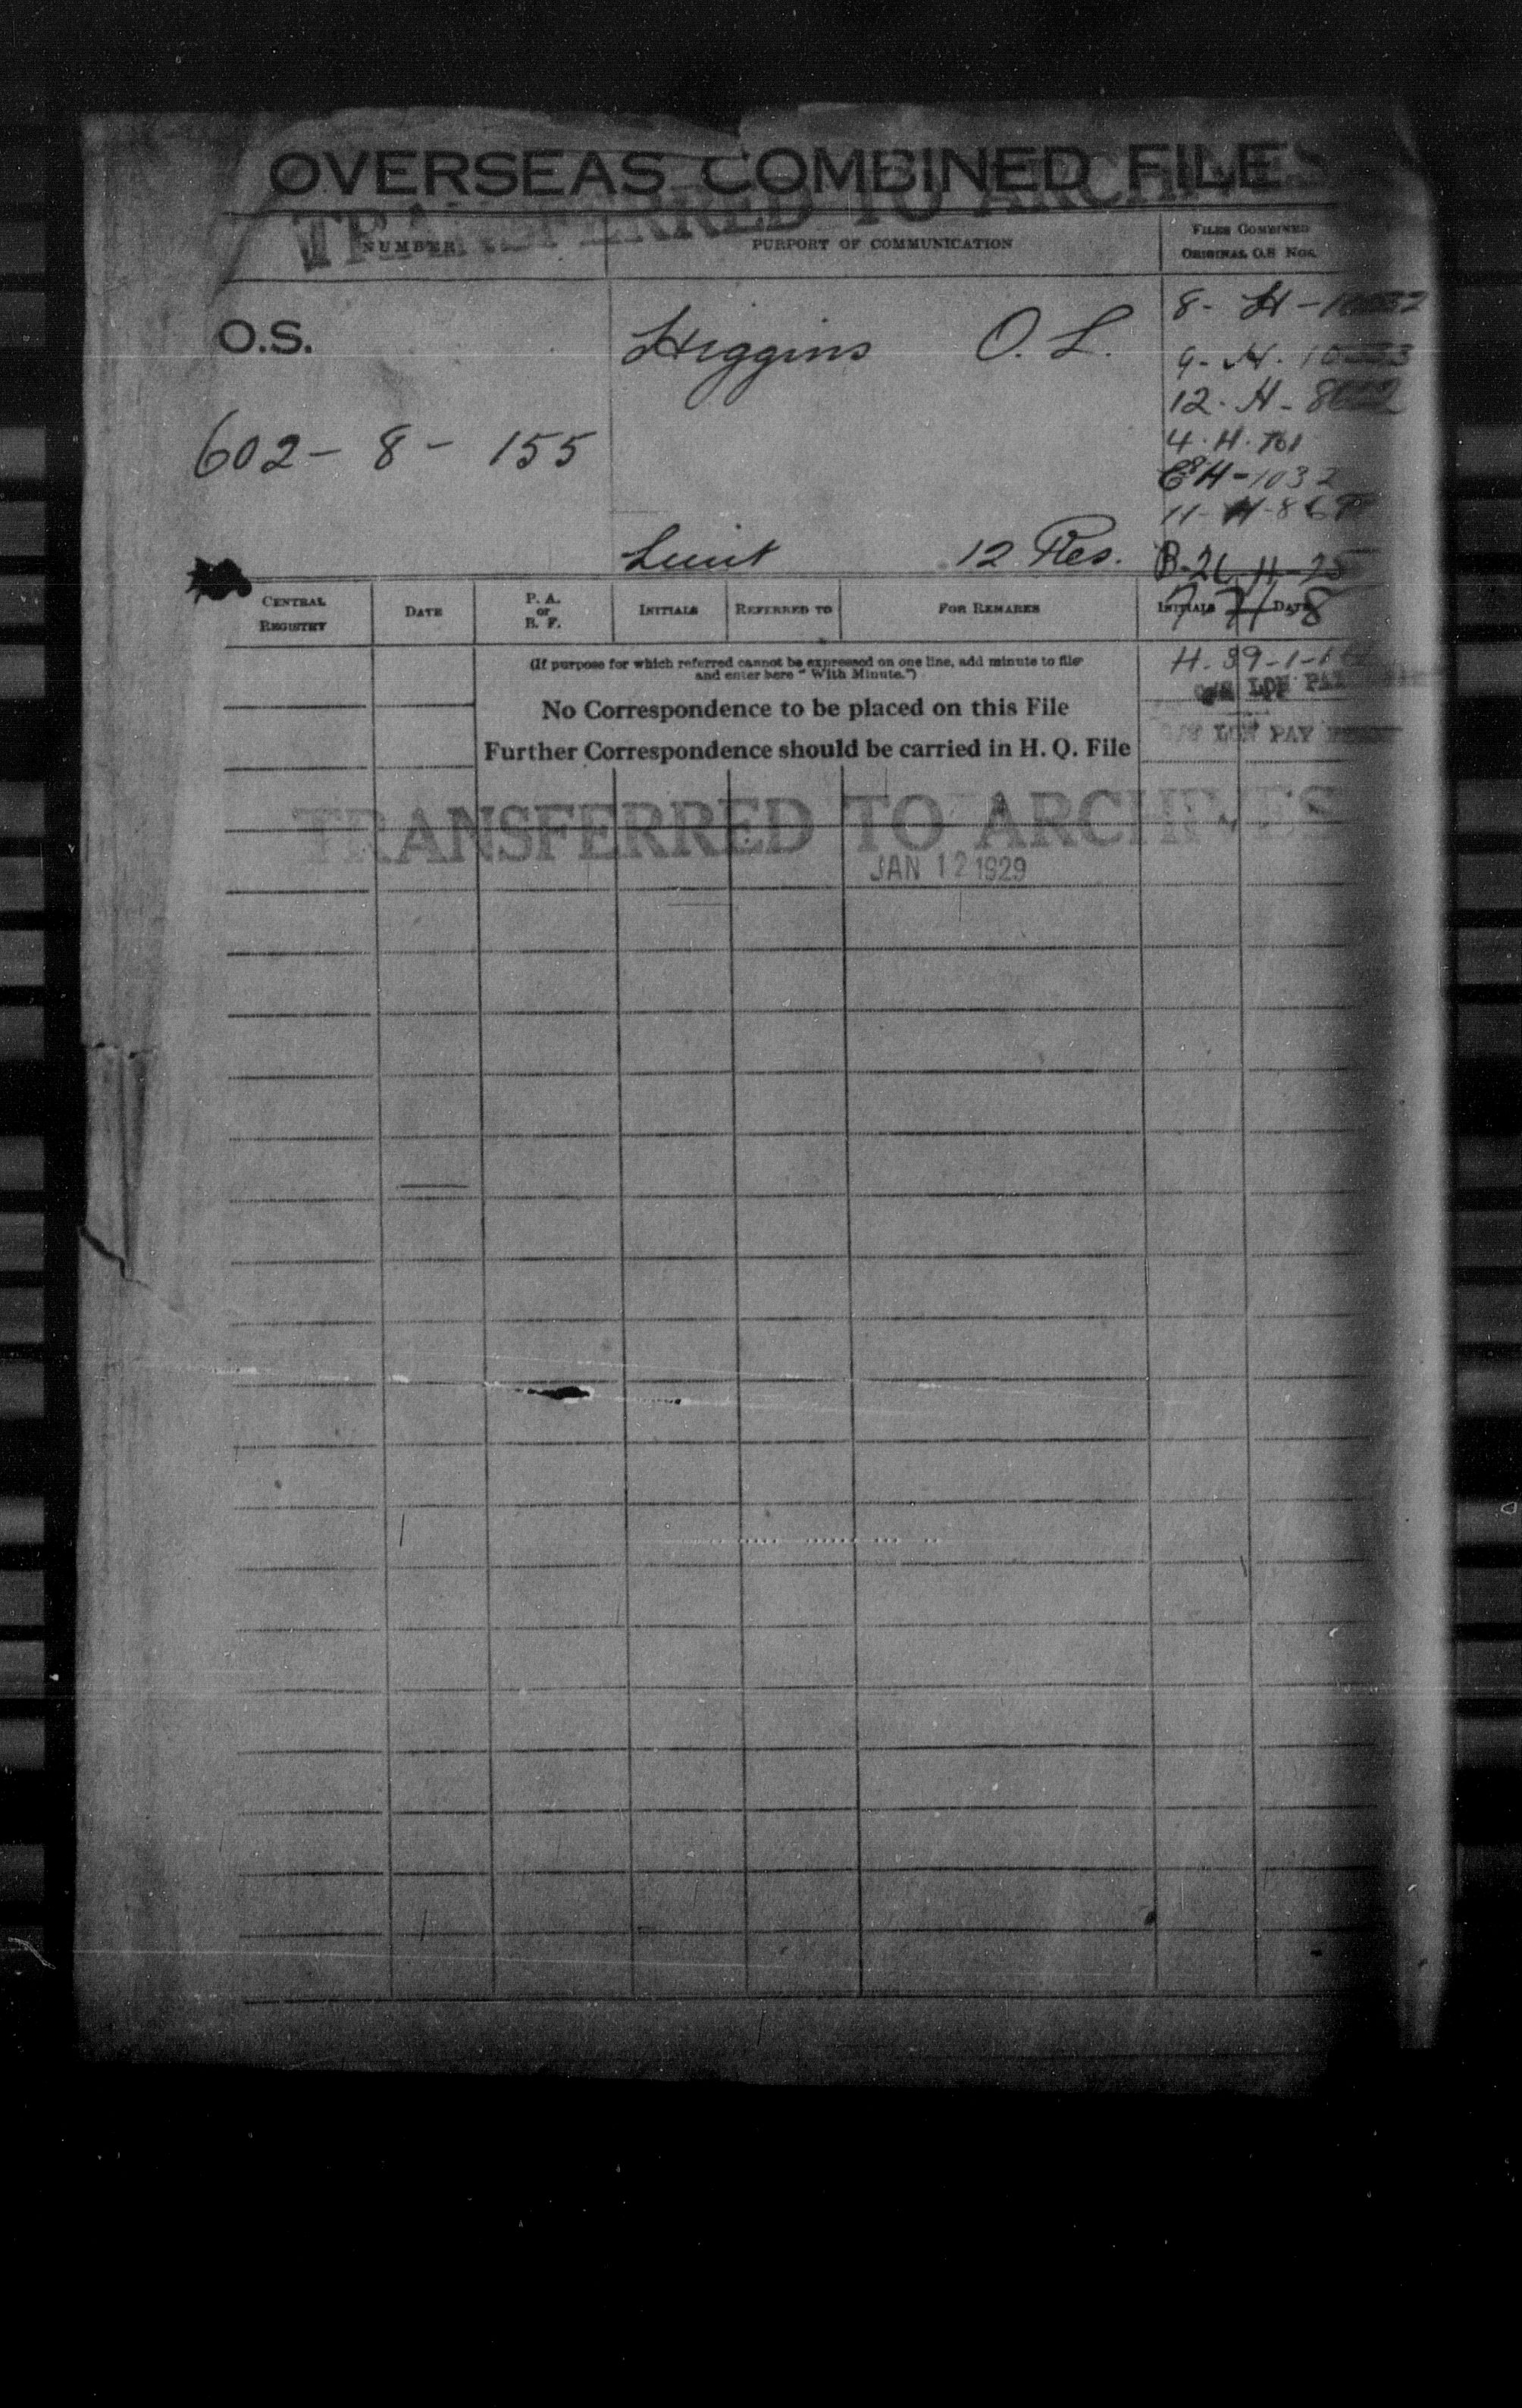 OVERSEAS COMBINED FILE
TRANSFERRED TO ARCHIVES
NUMBER PURPORT OF COMMUNICATION FILES COMBINED
ORIGINAL O.S NOS.
O.S. Higgins O. L.
602 - 8 - 155
8 - H -
9 - H -
12 - H -
4 - H - 701
H - 1032
11 - H - 869
Lieut 12 Res.
B-26 H-25
7-71-8
CENTRAL REGISTRY DATE P. A. or B. F. INITIALS REFERRED TO FOR REMARKS INITIALS DATE
(If purpose for which referred cannot be expressed on one line, add minute to file
and enter here "With Minute.")
H. 39-1-
LON PAY
No Correspondence to be placed on this File
LON PAY
Further Correspondence should be carried in H. Q. File
TRANSFERRED TO ARCHIVES
JAN 12 1929